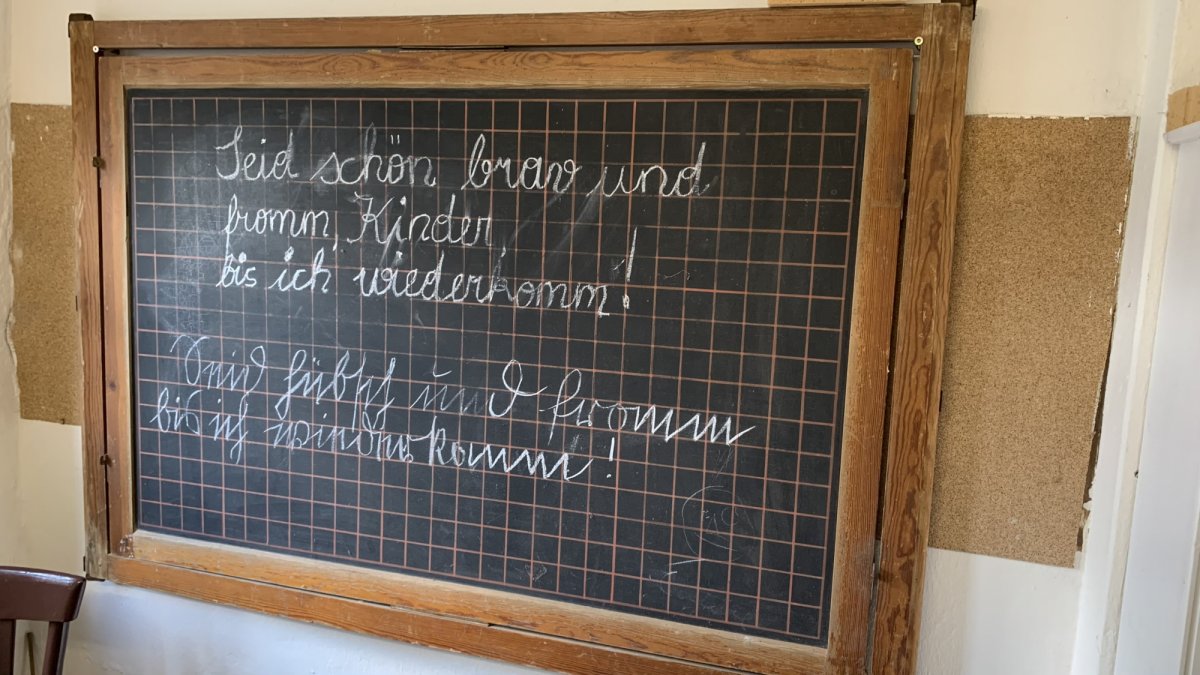 Seid schön brav und
fromm, Kinder,
bis ich wiederkomm!
Seid hübsch und fromm
bis ich wiederkomm!